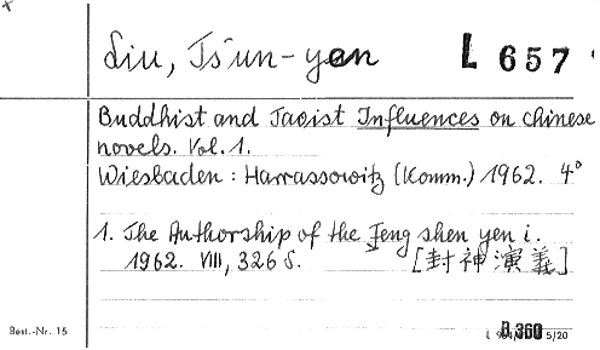 Liu, Ts'un-yen
L 657
Buddhist and Taoist Influences on chinese
novels. Vol. 1.
Wiesbaden : Harrassowitz (Komm.) 1962. 4°
1. The Authorship of the Feng shen yen i.
1962. VIII, 326 S. [封神演義]
Best.-Nr. 15
B 360
5/20